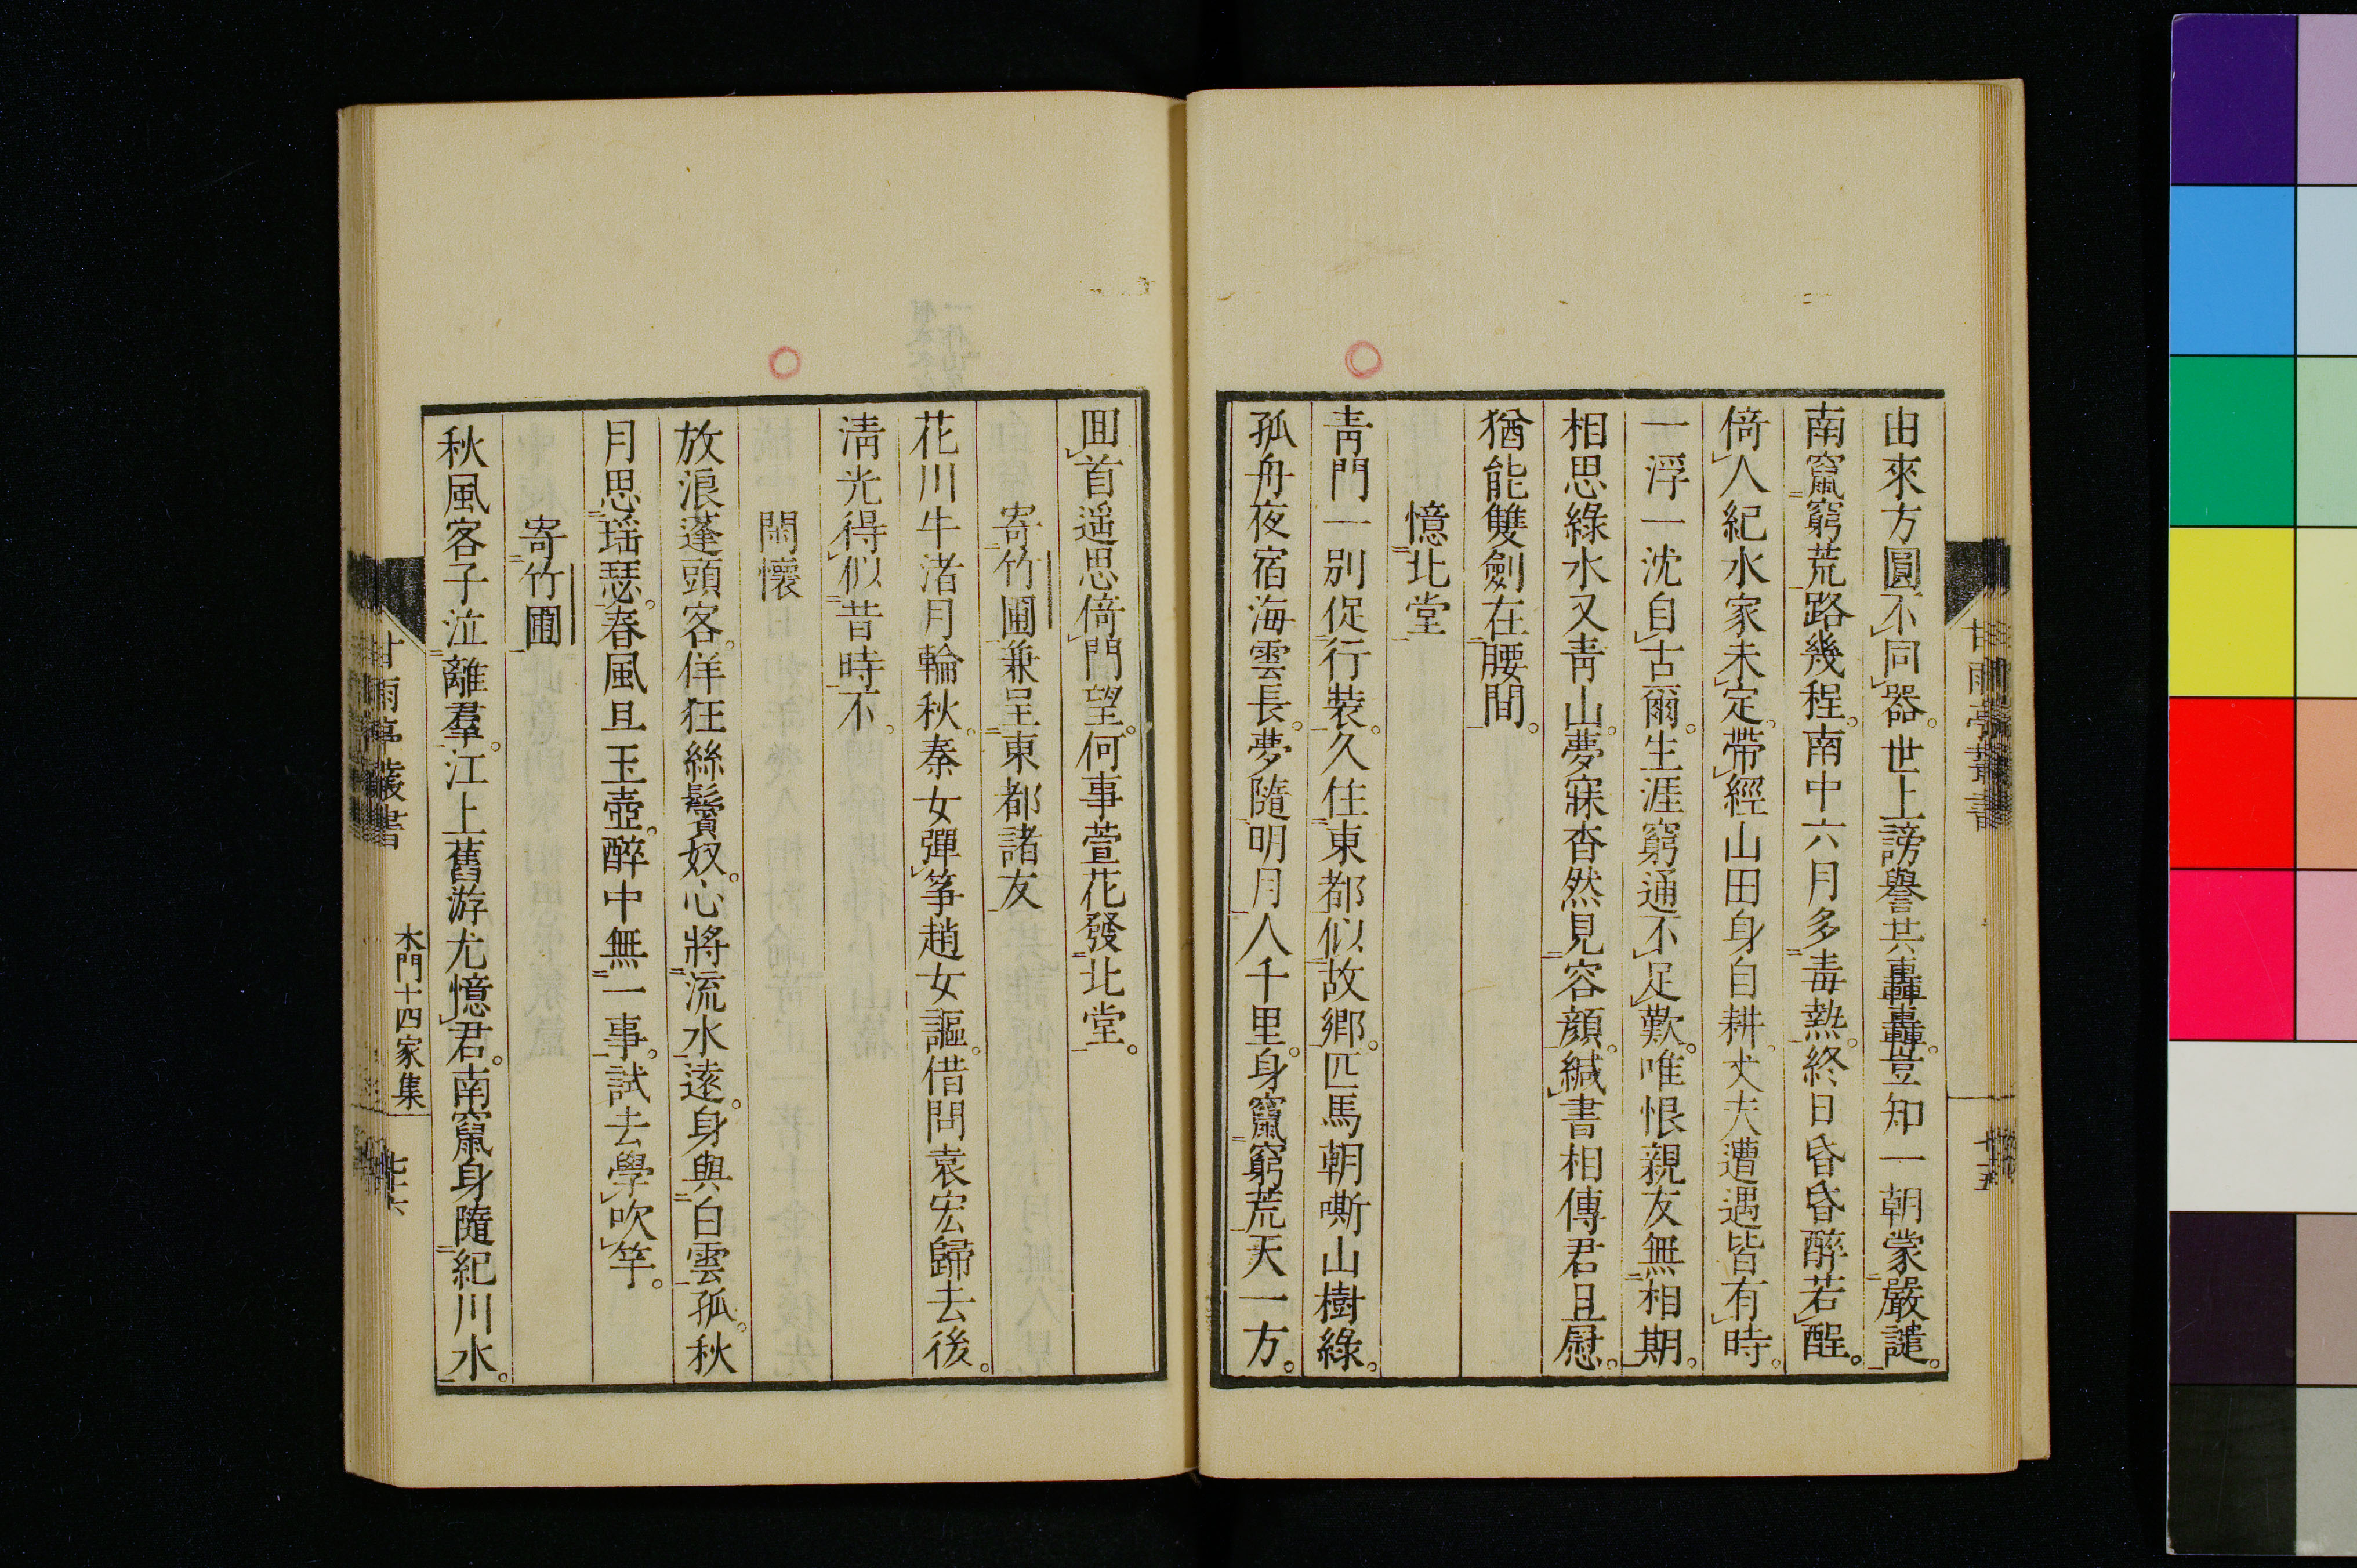 由來方圓不同器。世上謗譽共轟轟。豈知一朝蒙嚴譴。
南竄窮荒路幾程。南中六月多毒熱。終日昏昏醉若醒。
倚人紀水家未定。帶經山田身自耕。丈夫遭遇皆有時。
一浮一沈自古爾。生涯窮通不足歎。唯恨親友無相期。
相思綠水又靑山。夢寐杳然見容顏。緘書相傳君且慰。
猶能雙劍在腰間。
憶北堂
靑門一別促行裝。久住東都似故鄉。匹馬朝嘶山樹綠。
孤舟夜宿海雲長。夢隨明月人千里。身竄窮荒天一方。
甘雨亭叢書
十五
回首遥思倚門望。何事萱花發北堂。
寄竹圃兼呈東都諸友
花川牛渚月輪秋。秦女彈箏趙女謳。借問袁宏歸去後。
淸光得似昔時不。
閑懷
放浪蓬頭客。佯狂絲鬢奴。心將流水遠。身與白雲孤。秋
月思瑶瑟。春風且玉壺。醉中無一事。試去學吹竽。
寄竹圃
秋風客子泣離羣。江上舊游尤憶君。南竄身隨紀川水。
甘雨亭叢書
木門十四家集